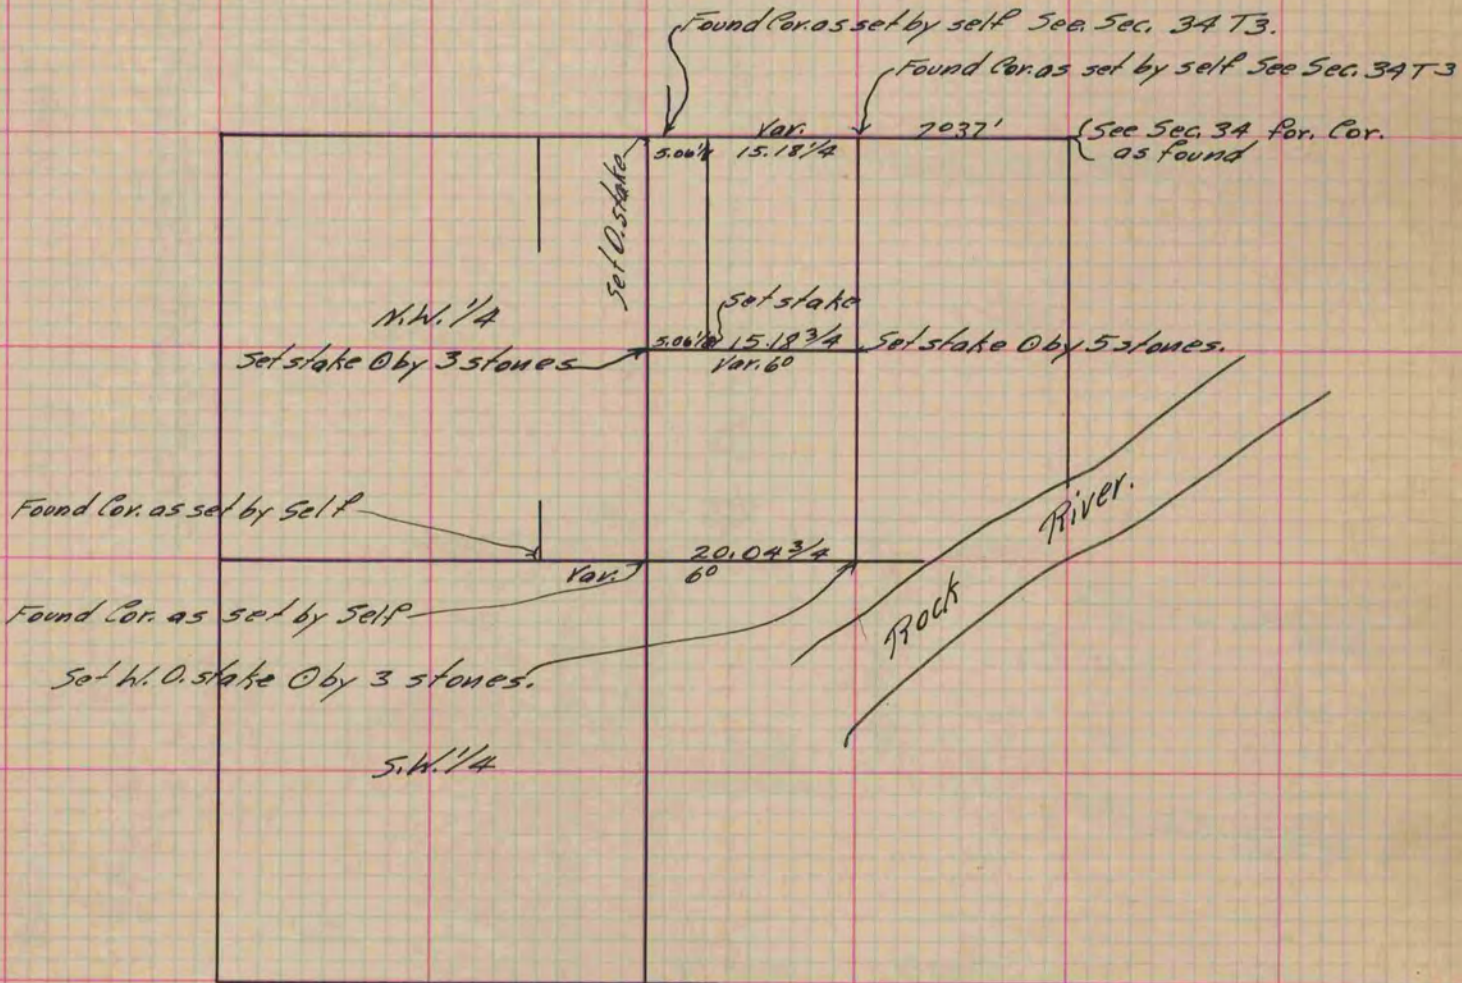 Found Cor. as set by self See. Sec. 34 T3.
Found Cor. as set by self See Sec. 34 T3
Var. 7°37'
{See Sec. 34 for. Cor.
as found
5.06¼ 15.18¼
Set O. stake
N.W. 1/4
set stake
5.06⅛ 15.18¾
Set stake ⊙ by 3 stones
Var. 6°
Set stake ⊙ by 5 stones.
Found Cor. as set by Self
20.04¾
Var. 6°
Found Cor. as set by Self
Set W. O. stake ⊙ by 3 stones.
Rock River.
S.W. 1/4